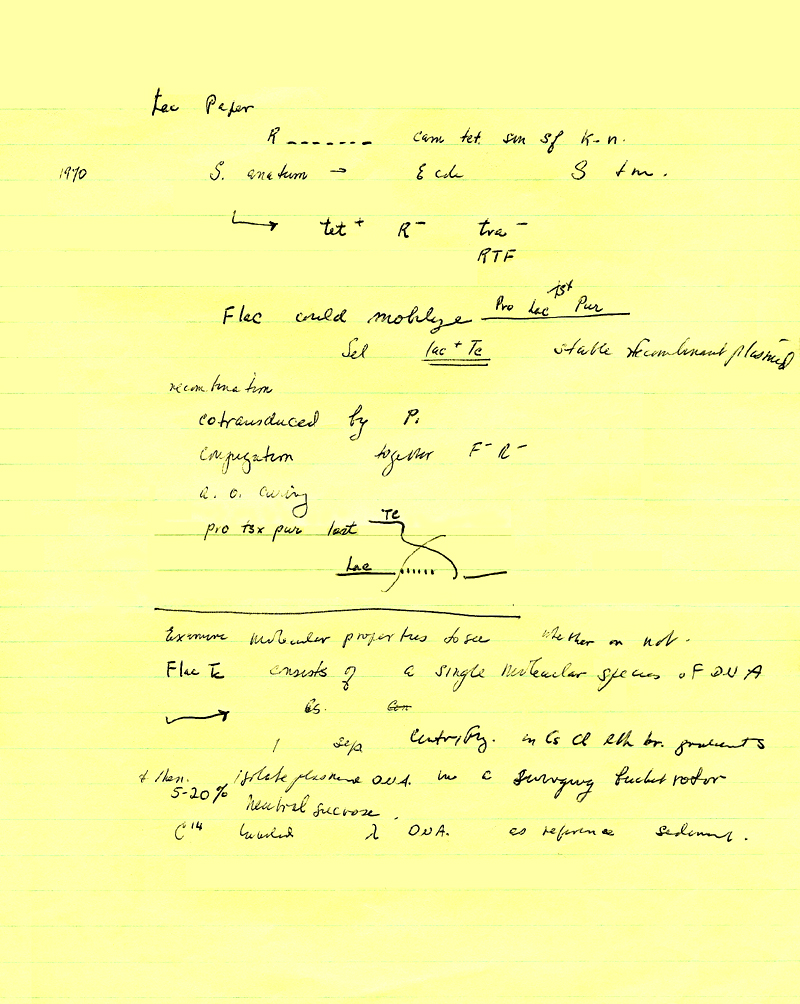 Lac Paper
R ------- cam tet. sm sf K-n.
1970 S. anatum → E coli S tm.
tet + R - tra -
RTF
Flac could mobilize Pro Lac tsx Pur
Sel lac + Tc stable recombinant plasmid
recombination
cotransduced by P1
conjugation together F - R -
a. o. curing
pro tsx pur lost Tc
Lac
Examine molecular properties to see whether or not.
Flac Tc consists of a single molecular species of DNA
Cs. Con
1 sep Centrifg. in Cs Cl eth br. gradients
+ then. isolate plasmid DNA. in a swinging bucket rotor
5-20% Neutral sucrose.
C14 labeled λ DNA. as reference sediment.